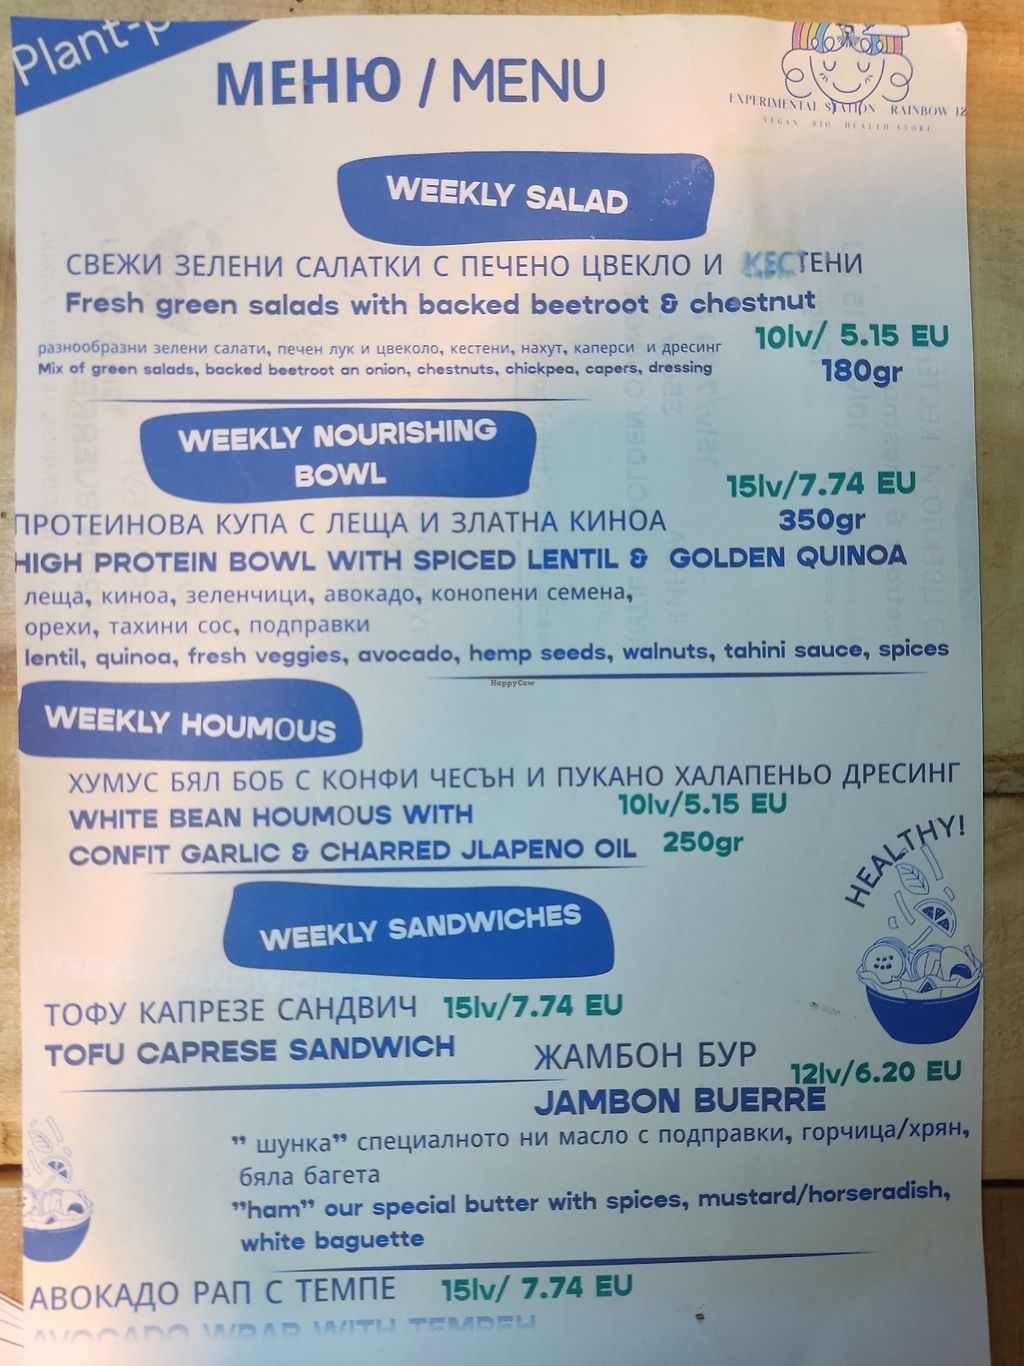 Plant-p
МЕНЮ / MENU
EXPERIMENTAL STATION RAINBOW 12
VEGAN BIO HEALTH STORE
WEEKLY SALAD
СВЕЖИ ЗЕЛЕНИ САЛАТКИ С ПЕЧЕНО ЦВЕКЛО И КЕСТЕНИ
Fresh green salads with backed beetroot & chestnut
10lv/ 5.15 EU
разнообразни зелени салати, печен лук и цвеколо, кестени, нахут, каперси и дресинг
Mix of green salads, backed beetroot an onion, chestnuts, chickpea, capers, dressing
180gr
WEEKLY NOURISHING
BOWL
15lv/7.74 EU
ПРОТЕИНОВА КУПА С ЛЕЩА И ЗЛАТНА КИНОА
350gr
HIGH PROTEIN BOWL WITH SPICED LENTIL & GOLDEN QUINOA
леща, киноа, зеленчици, авокадо, конопени семена,
орехи, тахини сос, подправки
lentil, quinoa, fresh veggies, avocado, hemp seeds, walnuts, tahini sauce, spices
HappyCow
WEEKLY HOUMOUS
ХУМУС БЯЛ БОБ С КОНФИ ЧЕСЪН И ПУКАНО ХАЛАПЕНЬО ДРЕСИНГ
WHITE BEAN HOUMOUS WITH
10lv/5.15 EU
CONFIT GARLIC & CHARRED JLAPENO OIL
250gr
HEALTHY!
WEEKLY SANDWICHES
ТОФУ КАПРЕЗЕ САНДВИЧ 15lv/7.74 EU
TOFU CAPRESE SANDWICH
ЖАМБОН БУР
12lv/6.20 EU
JAMBON BUERRE
" шунка" специалното ни масло с подправки, горчица/хрян,
бяла багета
"ham" our special butter with spices, mustard/horseradish,
white baguette
АВОКАДО РАП С ТЕМПЕ 15lv/ 7.74 EU
AVOCADO WRAP WITH TEMPEH